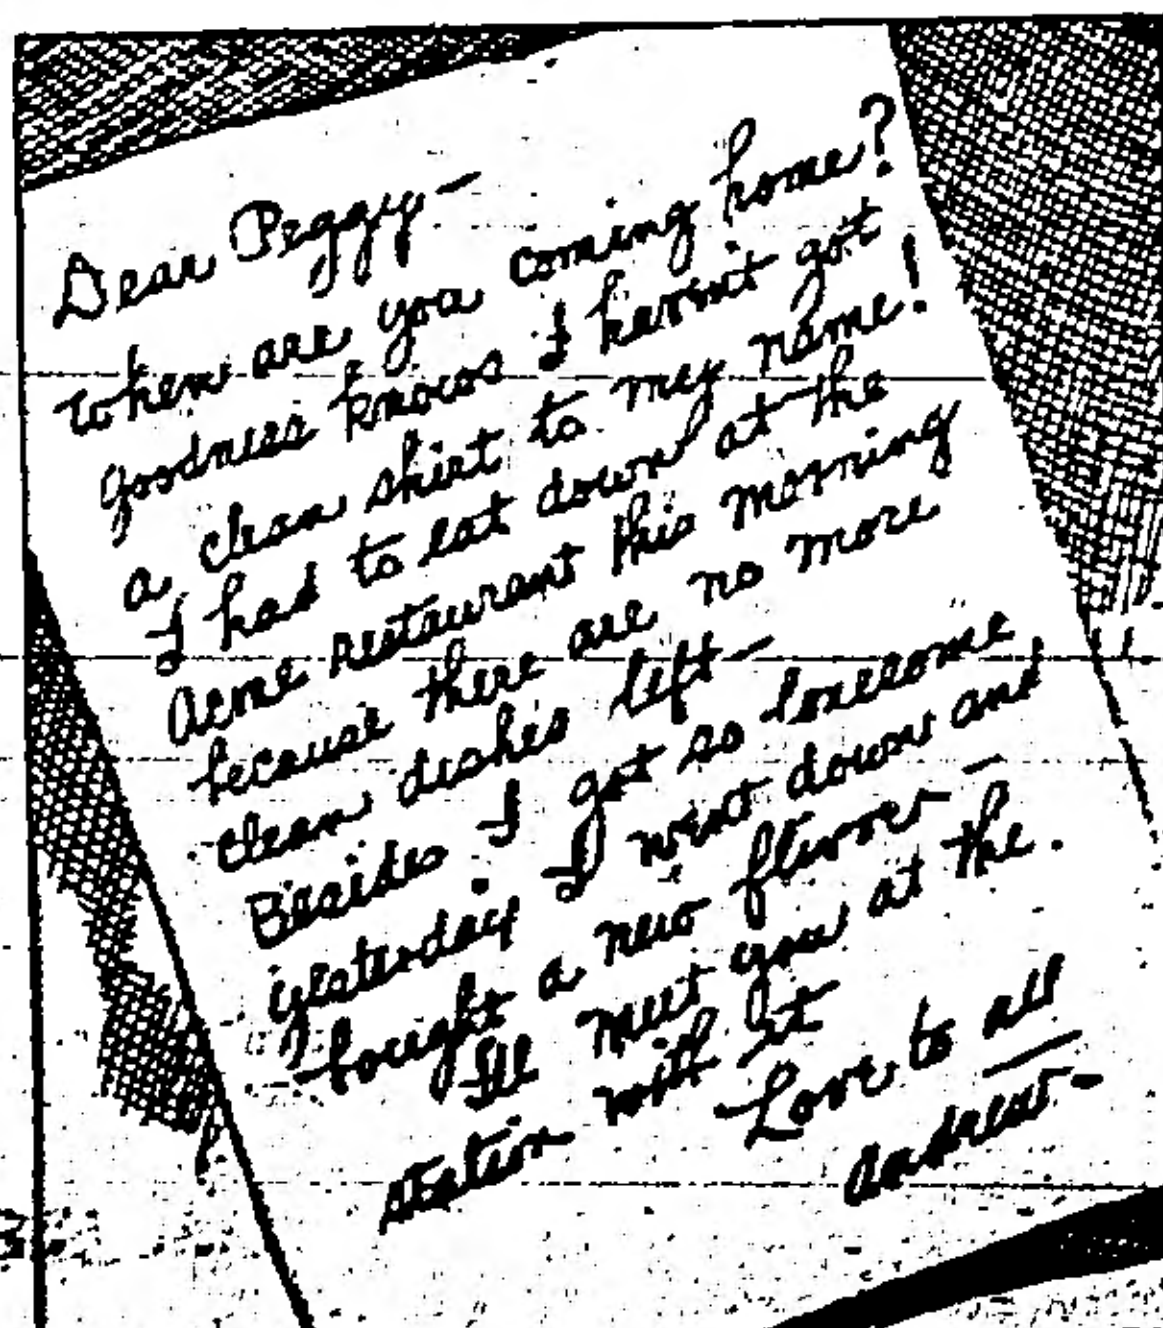 Dear Peggy—
When are you coming home?
goodness knows I haven't got
a clean shirt to my name!
I had to eat down at the
Acme restaurant this morning
because there are no more
clean dishes left—
Besides I got so lonesome
yesterday I went down and
bought a new flivver—
I'll meet you at the
station with it
Love to all
Andrew—